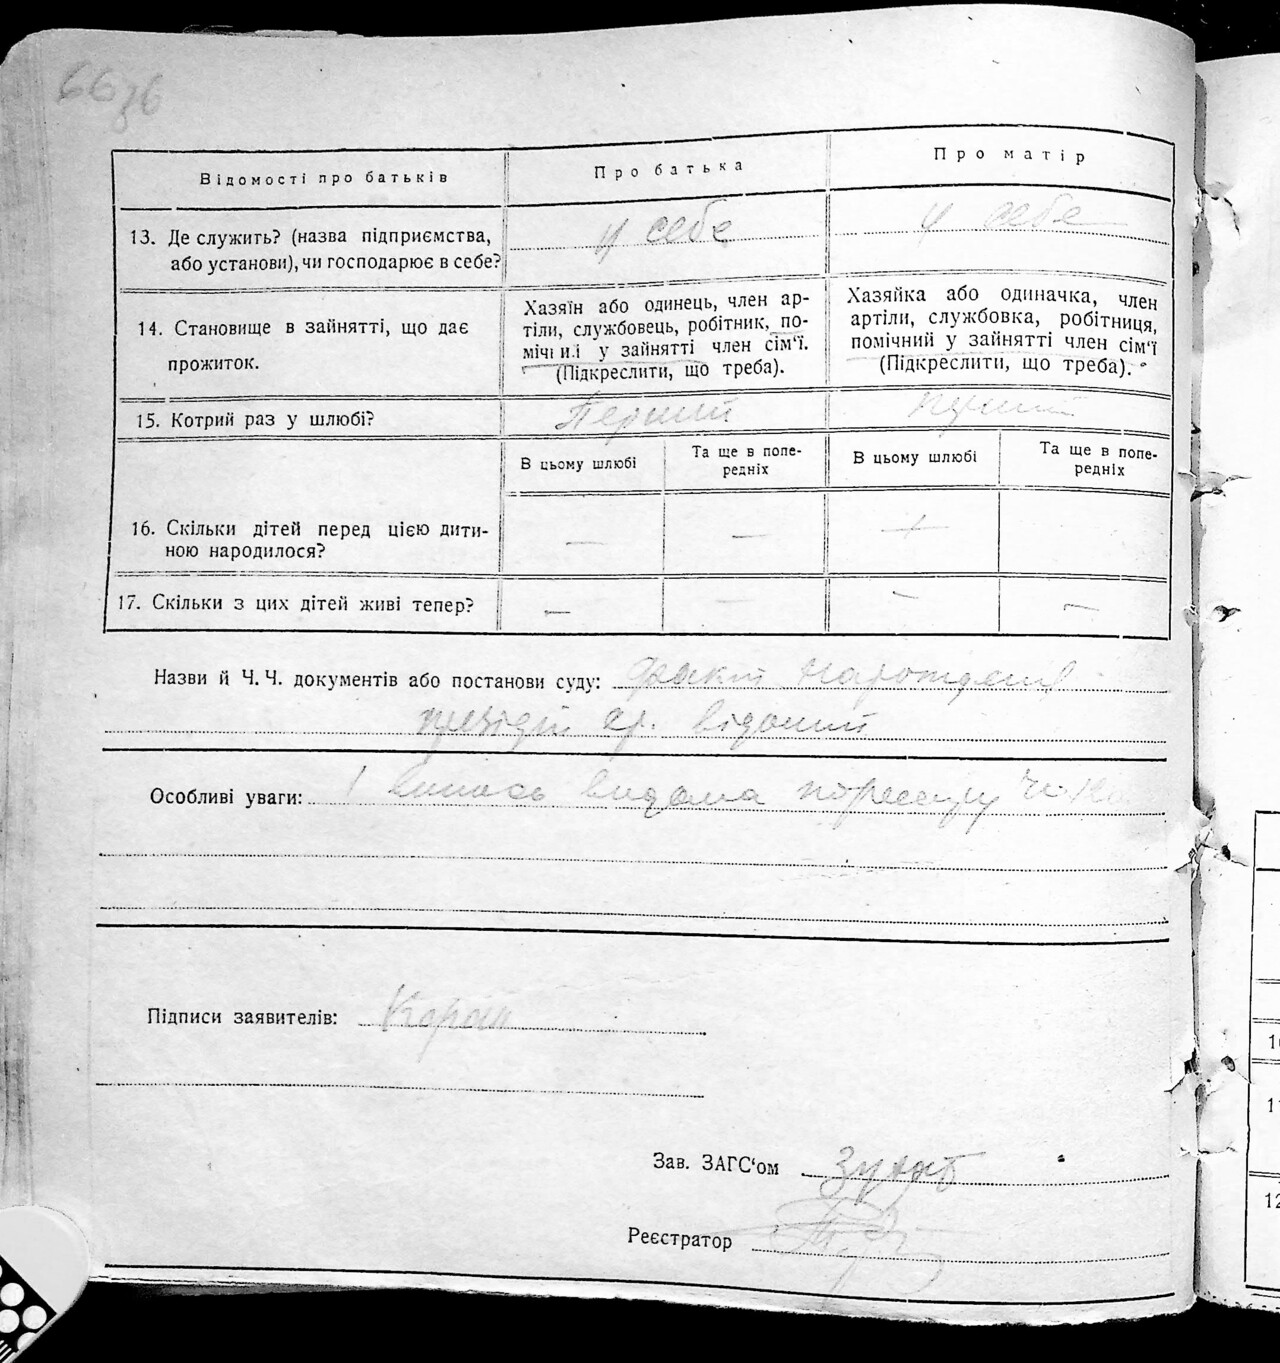 66зб
Відомості про батьків
Про батька
Про матір
13. Де служить? (назва підприємства,
або установи), чи господарює в себе?
у себе
у себе
14. Становище в зайнятті, що дає
прожиток.
Хазяїн або одинець, член ар-
тіли, службовець, робітник, по-
мічний у зайнятті член сім'ї.
(Підкреслити, що треба).
Хазяйка або одиначка, член
артіли, службовка, робітниця,
помічний у зайнятті член сім'ї
(Підкреслити, що треба).
15. Котрий раз у шлюбі?
Перший
Перший
В цьому шлюбі
Та ще в попе-
редніх
В цьому шлюбі
Та ще в попе-
редніх
16. Скільки дітей перед цією дити-
ною народилося?
— — —
17. Скільки з цих дітей живі тепер?
— — — —
Назви й Ч. Ч. документів або постанови суду: факт
відомий
Особливі уваги: видана
Підписи заявителів:
Зав. ЗАГС'ом
Реєстратор
10
11
12